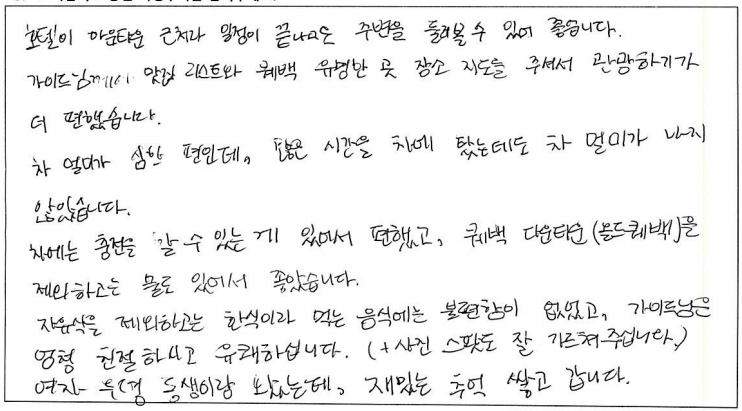 호텔이 다운타운 근처라 일정이 끝나고는 주변을 둘러볼 수 있어 좋습니다.
가이드님께서 맛집 리스트와 퀘백 유명한 곳 장소 지도를 주셔서 관광하기가
더 편했습니다.
차 멀미가 심한 편인데, 많은 시간을 차에 탔는데도 차 멀미가 나지
않았습니다.
차에는 충전을 할 수 있는 게 있어서 편했고, 퀘백 다운타운(올드퀘백)을
제외하고는 물도 있어서 좋았습니다.
자유식을 제외하고는 한식이라 먹는 음식에는 불편함이 없었고, 가이드님은
엄청 친절하시고 유쾌하십니다. (+사진 스팟도 잘 가르쳐주십니다.)
여자 두명 동생이랑 왔는데, 재밌는 추억 쌓고 갑니다.